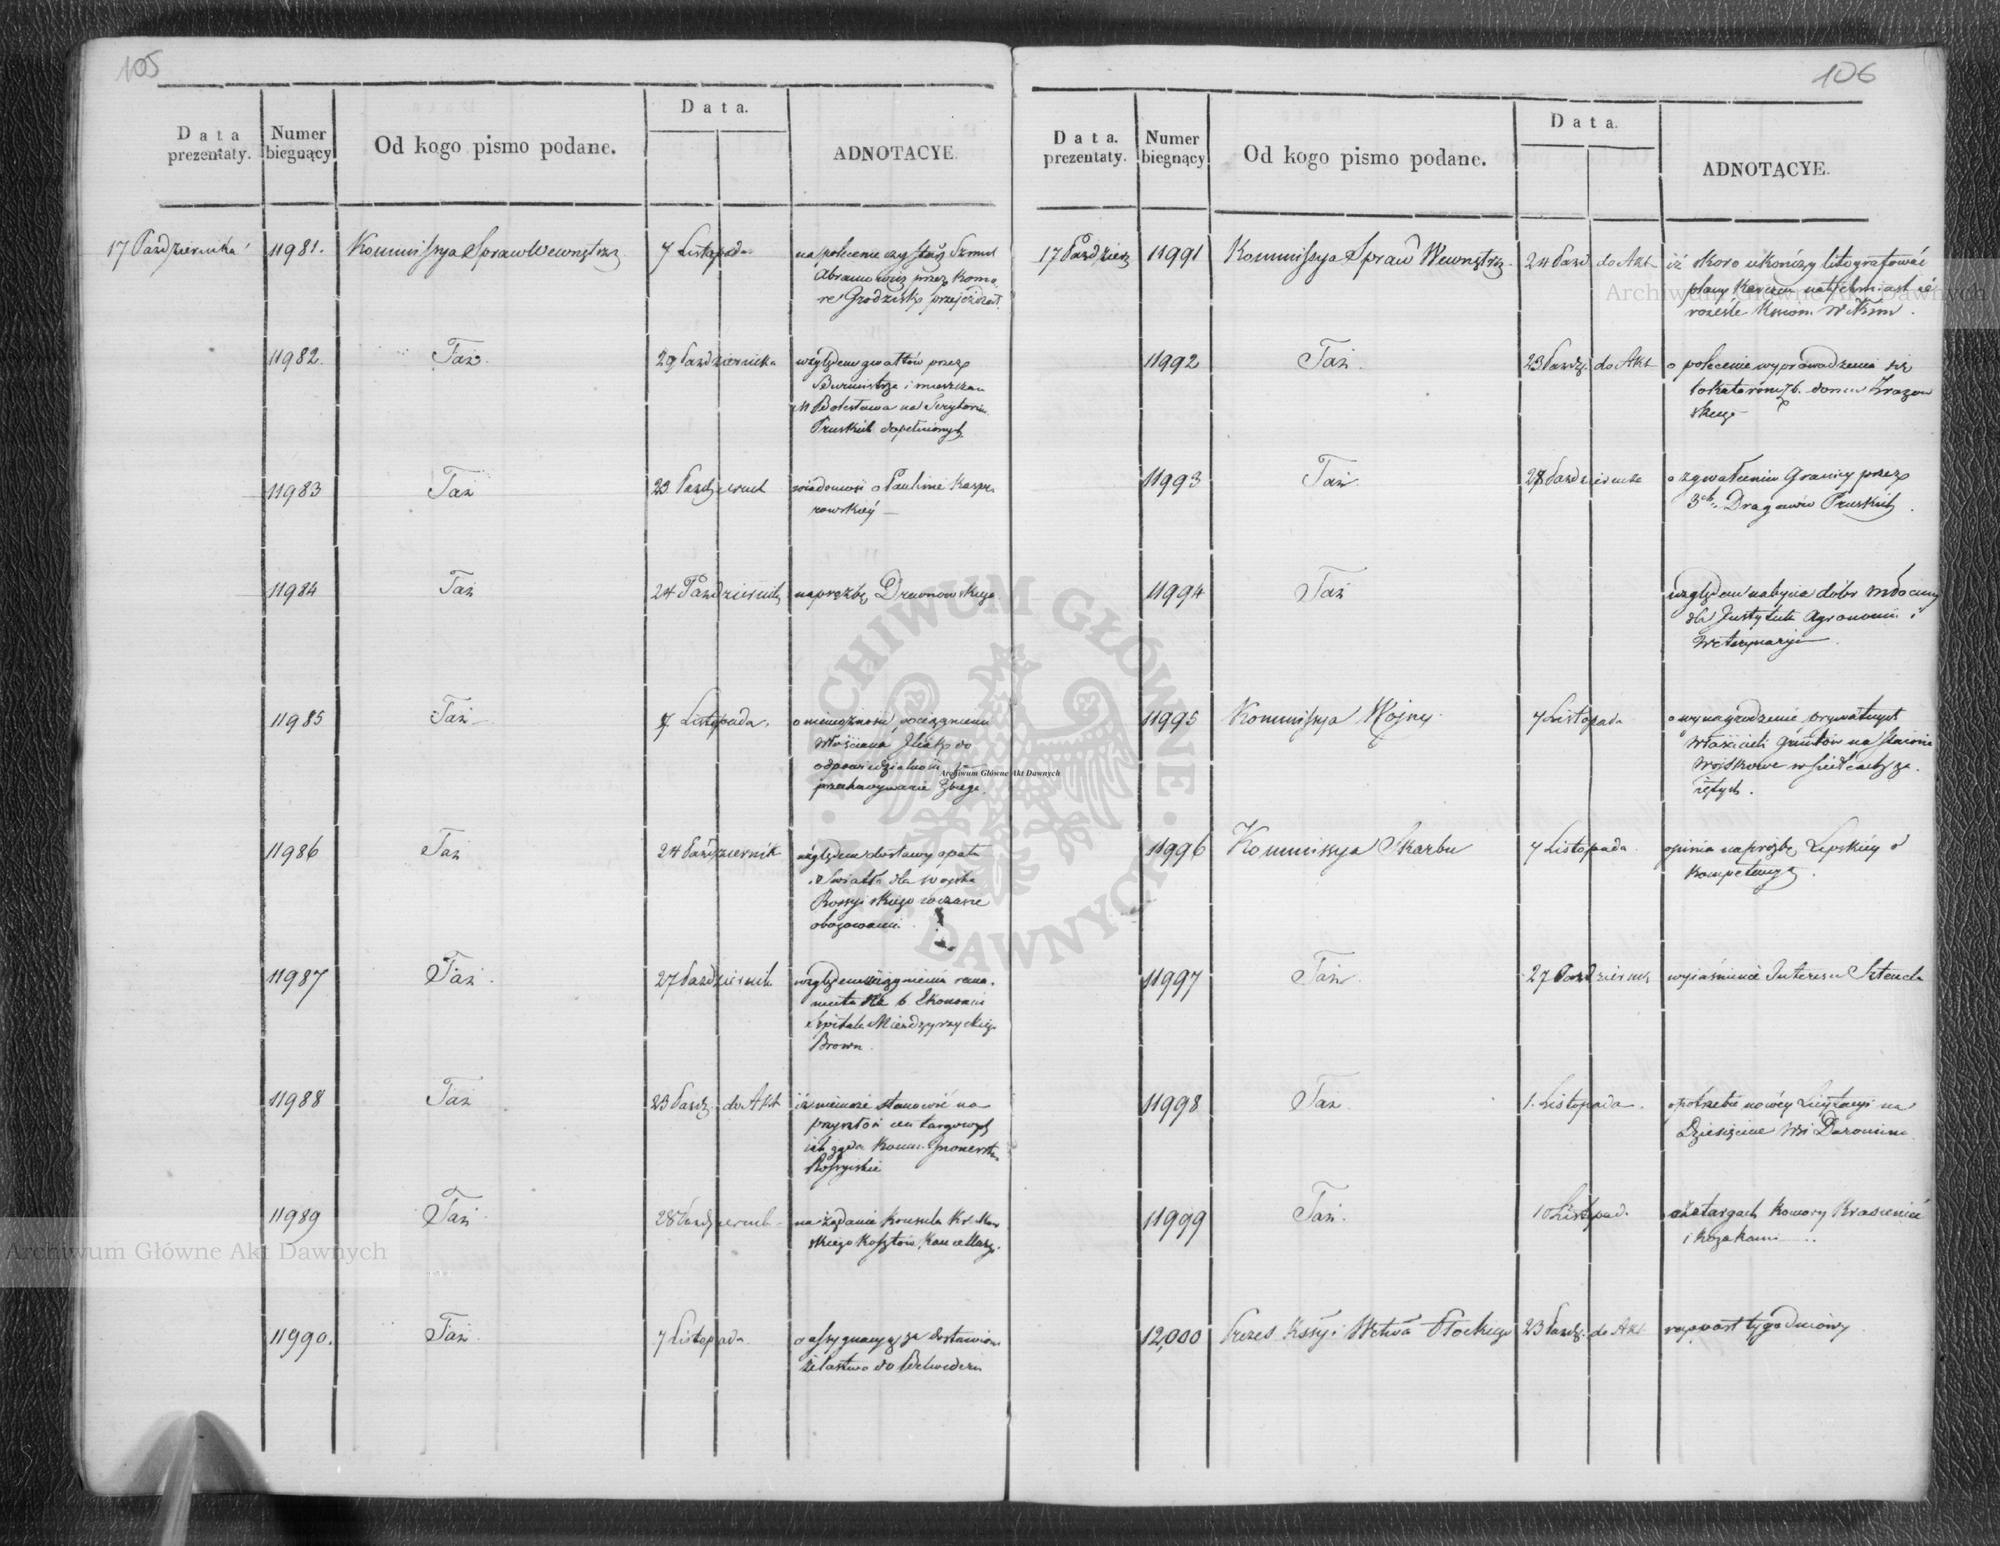 105
Data prezentaty.
Numer biegnący
Od kogo pismo podane.
Data.
ADNOTACYE.
17 Października
11981.
Kommissya Spraw Wewnętrz
7 Listopada
na polecenie czy Staż Szmul
Abramowicz przez Komo
rę Grodzisko przejeżdżał
11982.
Taż.
29 Października
względem gwałtów przez
Burmistrza i mieszkań
Bolesławia na Terytorium
Pruskich dopełnionych
11983
Taż
23 Paźdzternik
wiadomość o Paulinie Kaspe
rowskiéy
11984
Taż
24 Październik
na prozbę Drewnowskiego
11985
Taż
7 Listopada.
o niemożności pociągnienia
Włościana do
odpowiedzialności za
przechowywanie Zbiega.
11986
Taż
24 Październik
względem dostawy opału
i Swiatła dla woyska
Rossyiskiego w czasie
obozowania
11987
Taż.
27 Październik
względem ściągnienia rema
nentu od b. Ekonoma
Szpitala Międzyrzyckiego
Brown.
11988
Taż
23 Paźdz. do Akt
iż niemoże stanowić na
przyszłość cen targowych
ich żąda Komm.
Rossyiskie
11989
Taż
28 Paźdzternik
na żądanie Konsula
skiego Kosztów Kancellary.
11990.
Taż
7 Listopada
o assygnacyą za dostawione
żelastwo do Belwederu
106
Data. prezentaty.
Numer biegnący
Od kogo pismo podane.
Data.
ADNOTACYE.
17 Paździer
11991
Kommissya Spraw Wewnętrz.
24 Paźd do Akt
iż skoro ukończy litografować
plany Karczem natychmiast ie
roześle Komm. Wdkim
11992
Taż
23 Paźdz. do Akt
o polecenie wyprowadzenia się
lokatorom z b. domu Zrazow
skiego
11993
Taż.
28 Październik
o zgwałceniu Granicy przez
3ch Dragonów Pruskich.
11994
Taż
względem nabycia dóbr Młociny
dla Instytutu Agronomii i
Weterynaryi
11995
Kommissya Woyny.
7 Listopada
o wynagrodzenie prywatnych
Właścicieli gruntów na stawia
woiskowe w Siedlcach za
iętych.
11996
Kommissya Skarbu
7 Listopada
opinia na prozbę Lipskiéy o
kompetencyą.
11997
Taż
27 Październik
wyiaśnienie Interesu Sztencla
11998
Taż.
1. Listopada.
o potrzebie nowéy Licytacyi na
Dziesięcinę Wsi Daromin.
11999
Taż.
10 Listopad.
o zatargach Komory Krasieniec
i Kozakami
12,000
Prezes Kssyi Wdztwa Płockiego
23 Paźdz. do Akt
rapport tygodniowy
Archiwum Główne Akt Dawnych
Archiwum Główne Akt Dawnych
Archiwum Główne Akt Dawnych
ARCHIWUM GŁÓWNE AKT DAWNYCH